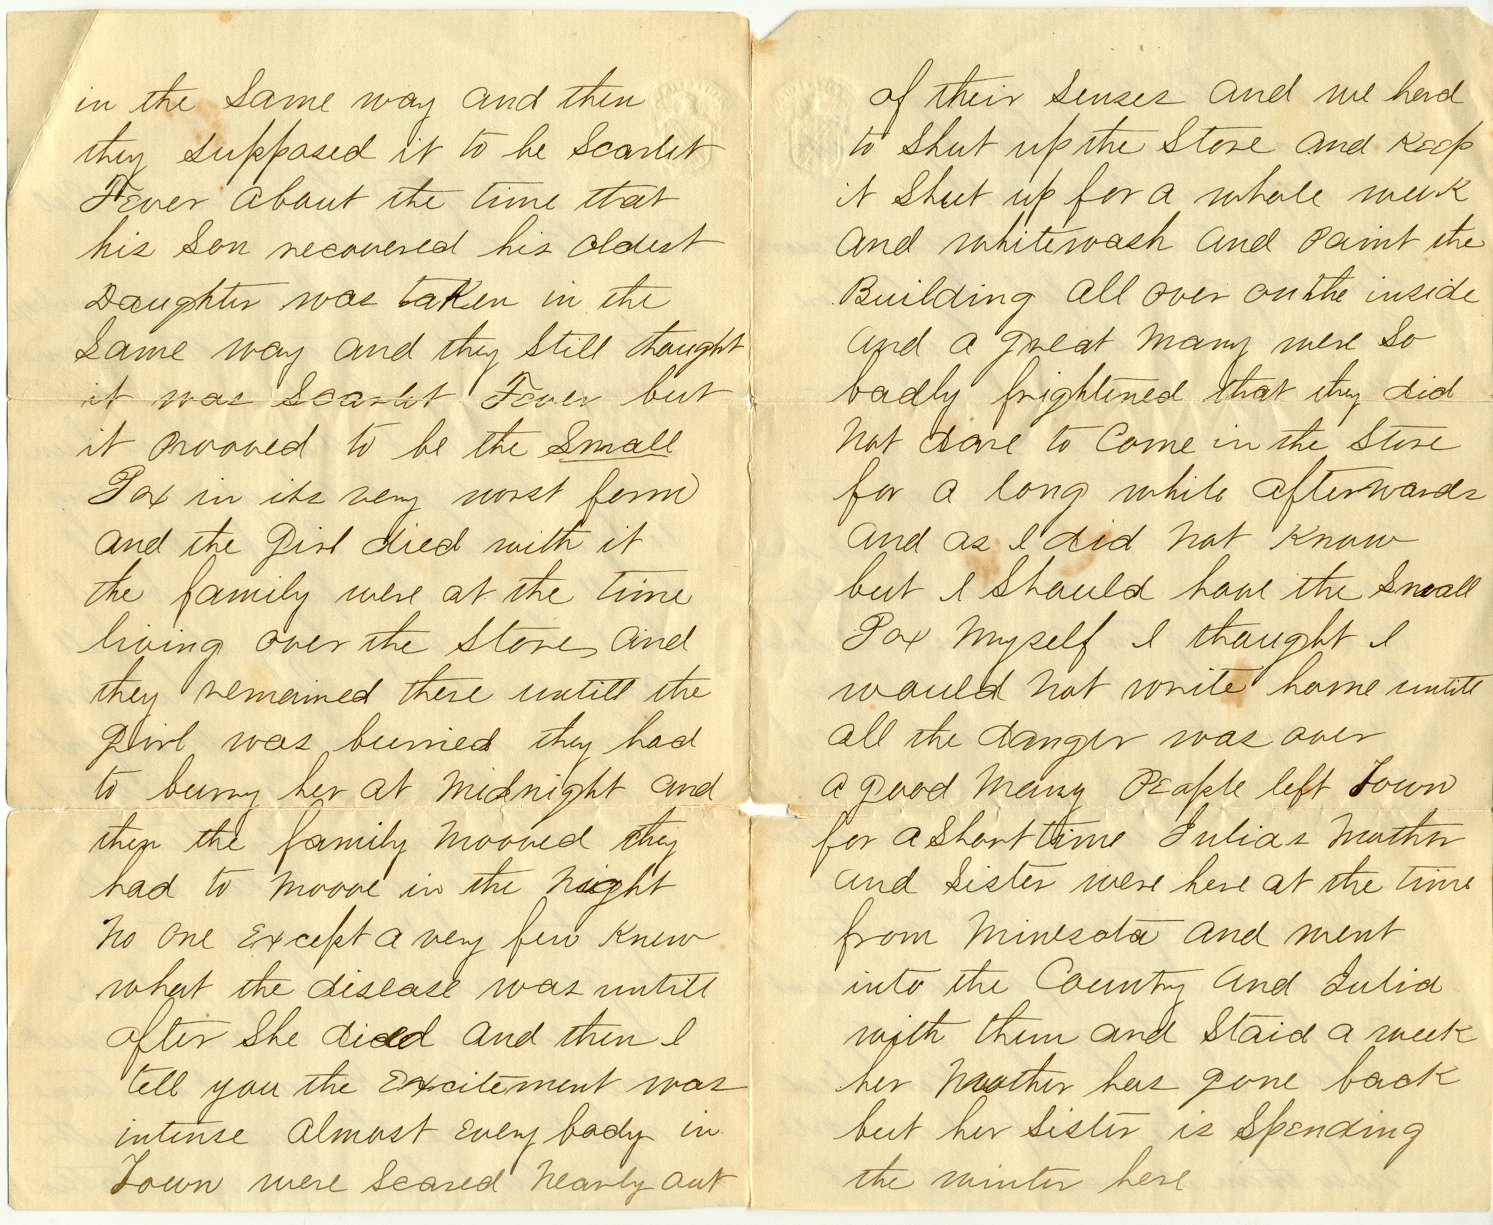 in the Same way and then
they supposed it to be Scarlet
Fever About the time that
his Son recovered his oldest
Daughter was taken in the
Same way and they Still thought
it was Scarlet Fever but
it prooved to be the Small
Pox in its very worst form
and the Girl died with it
the family were at the time
living over the Store, and
they remained there untill the
Girl was burried they had
to burry her at Midnight and
then the family Mooved they
had to Moove in the Night
No one Except a very few Knew
what the disease was untill
after She died and then I
tell you the Excitement was
intense Almost Every body in
Town were Scared Nearly out
of their Senses and we had
to Shut up the Store and Keep
it Shut up for a whole week
and whitewash and Paint the
Building all over on the inside
and a great Many were So
badly frightened that they did
Not dare to Come in the Store
for a long while afterwards
and as I did Not Know
but I Should have the Small
Pox Myself I thought I
would Not write home untill
all the danger was over
a good Many People left Town
for a Short time Julias Mother
and Sister were here at the time
from Minesota and went
into the Country and Julia
with them and Staid a week
her Mother has gone back
but her Sister is Spending
the winter here